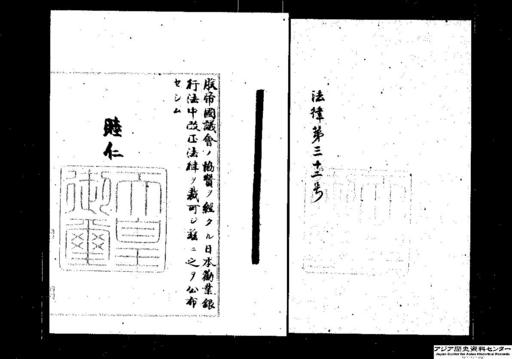 法律第三十二号
朕帝國議會ノ協賛ヲ經タル日本勸業銀
行法中改正法律ヲ裁可シ玆ニ之ヲ公布
セシム
睦仁
天皇
御璽
アジア歴史資料センター
Japan Center for Asian Historical Records